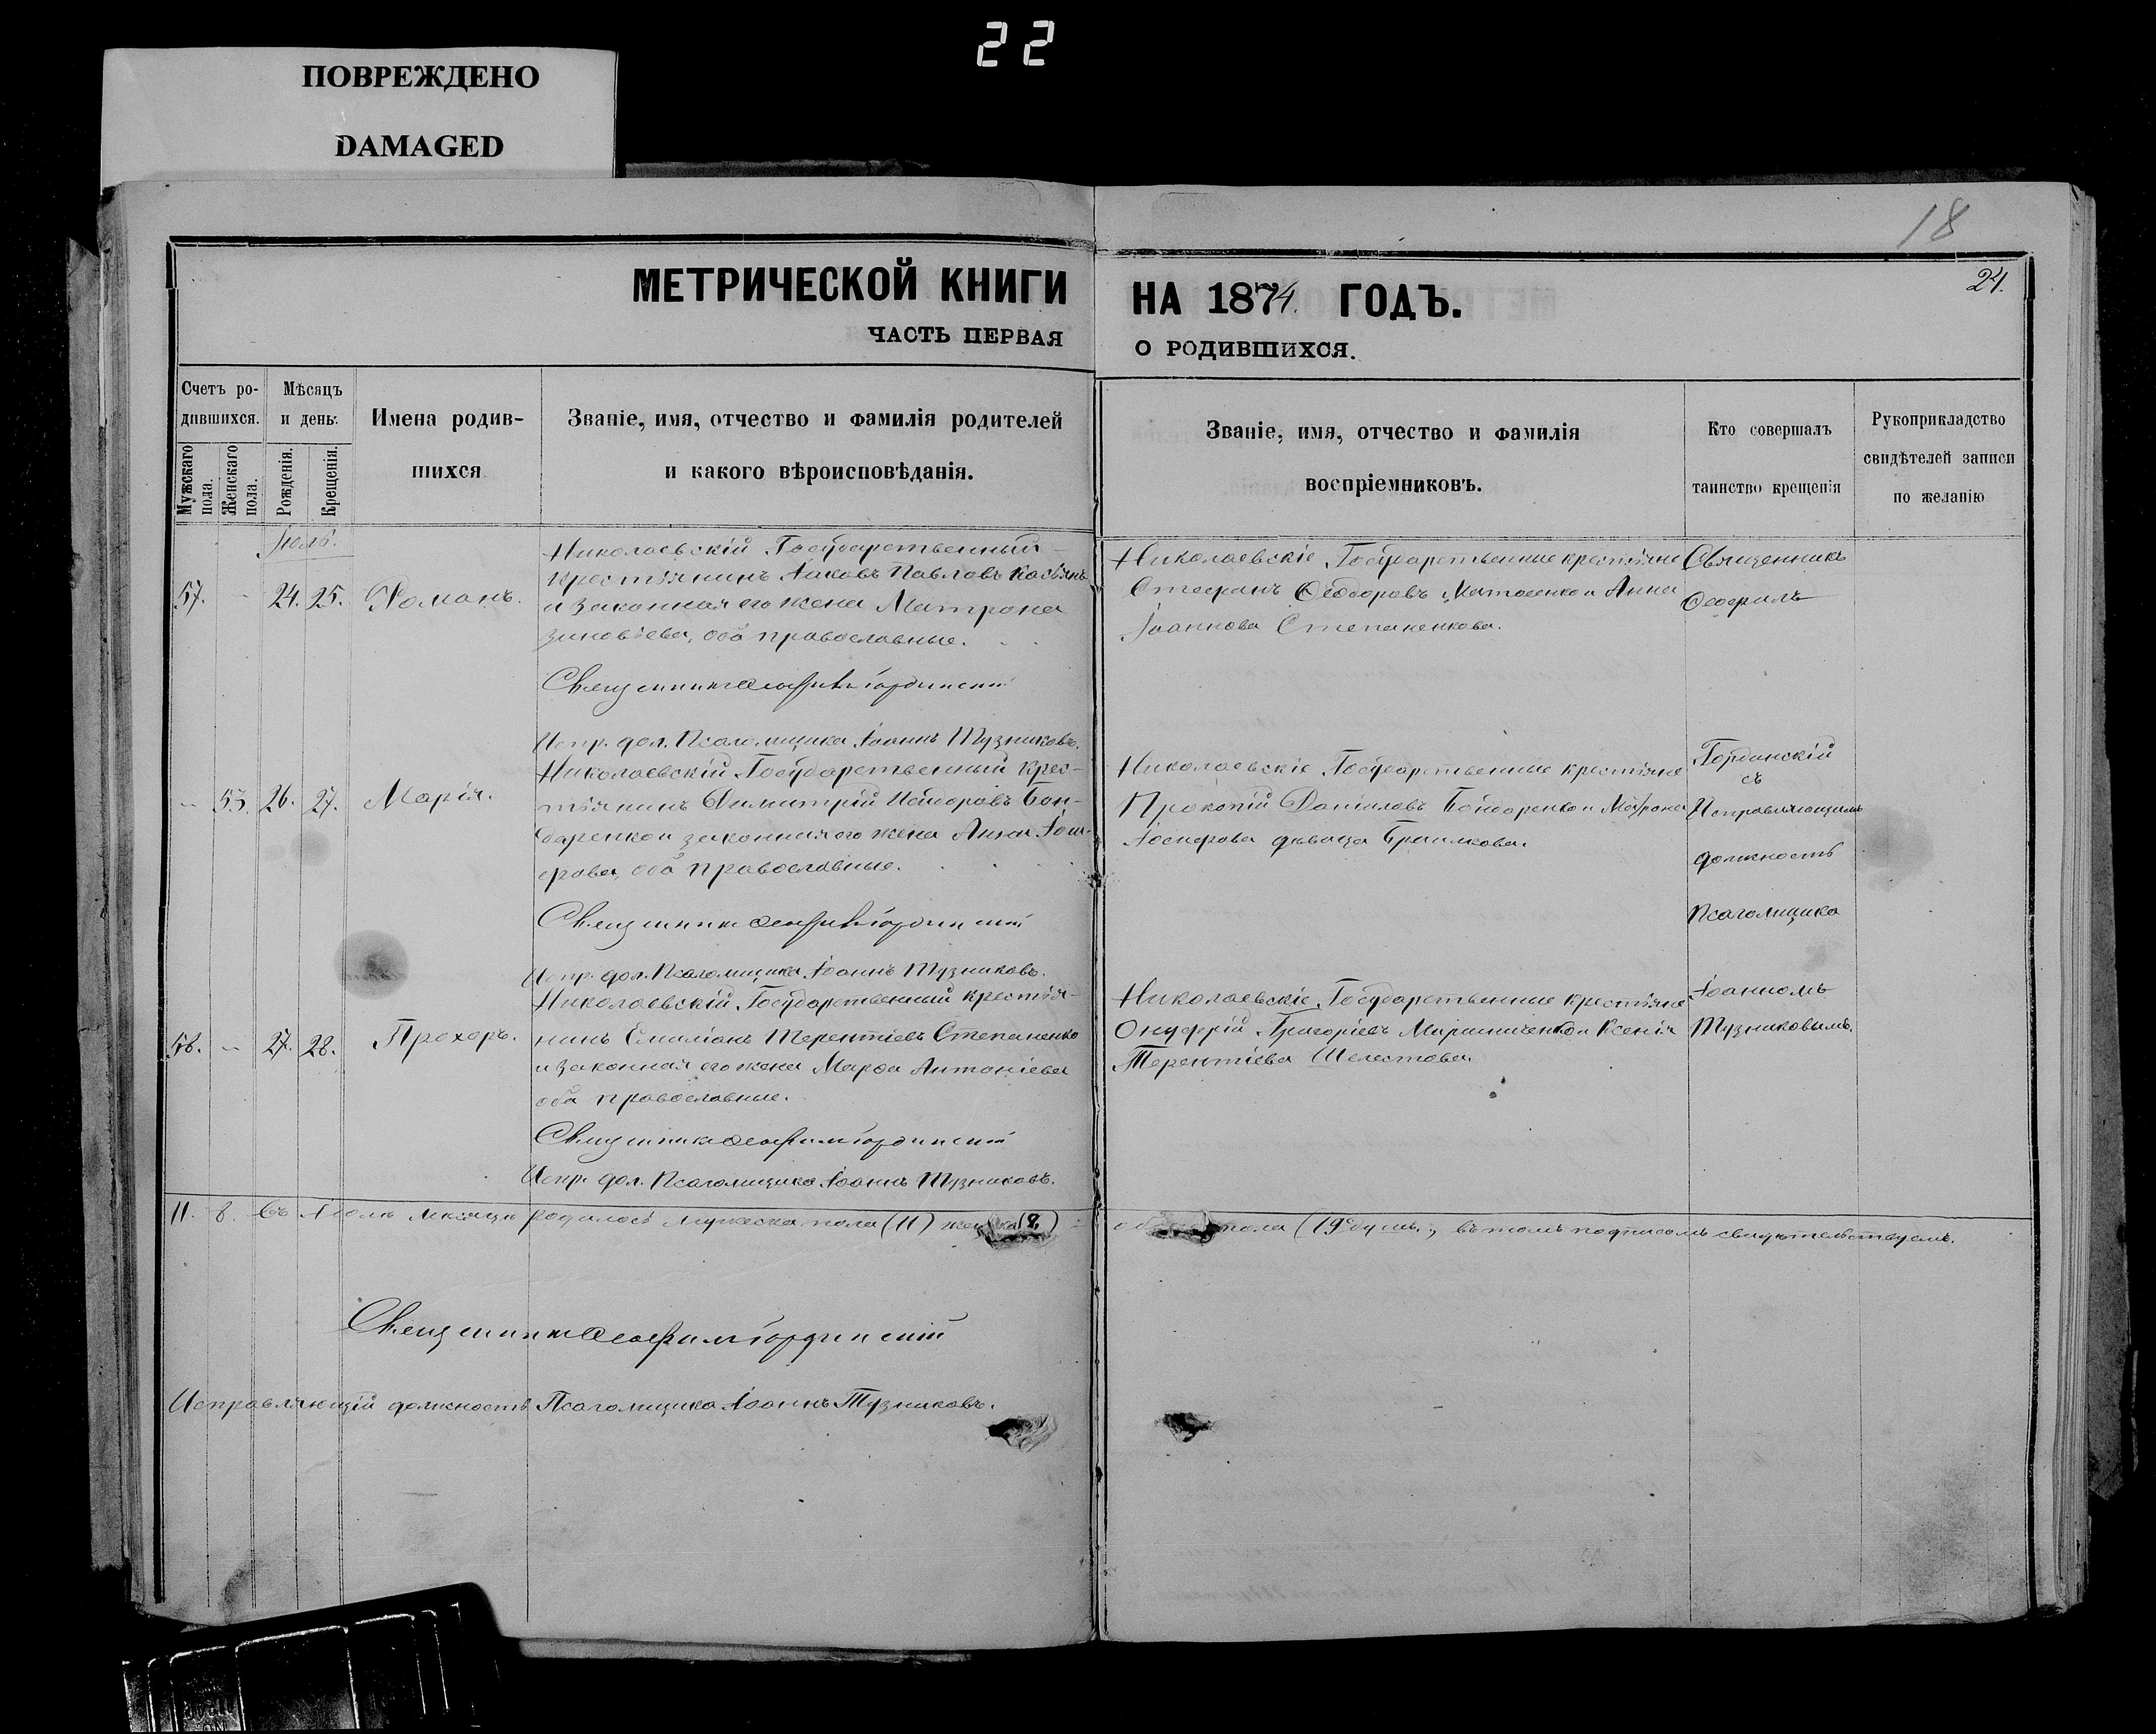 22
ПОВРЕЖДЕНО
DAMAGED
18
24.
МЕТРИЧЕСКОЙ КНИГИ НА 1874. ГОДЪ.
ЧАСТЬ ПЕРВАЯ О РОДИВШИХСЯ.
Счетъ ро-
дившихся.
Мужскаго пола.
Женскаго пола.
Мѣсяцъ
и день.
Рожденія.
Крещенія.
Имена родив-
шихся
Званіе, имя, отчество и фамилія родителей
и какого вѣроисповѣданія.
Званіе, имя, отчество и фамилія
воспріемниковъ.
Кто совершалъ
таинство крещенія
Рукоприкладство
свидѣтелей записи
по желанію
Іюль.
57. - 24. 25. Романъ.
Николаевскій Государственный
крестьянинъ Іаковъ Павловъ Касьянъ
и законная его жена Матрона
Зиновіева, оба православные.
Священникъ Ѳеофилъ Гординскій
Испр. дол. Псаломщика Іоаннъ Тузниковъ.
Николаевскіе Государственные крестьяне
Стефанъ Ѳеодоровъ Матвенко и Анна
Іоаннова Степаненкова.
- 53. 26. 27. Марія.
Николаевскій Государственный крес-
тьянинъ Димитрій Исидоровъ Бон-
даренко и законная его жена Анна Іоси-
фова, оба православные.
Священникъ Ѳеофилъ Гординскій
Испр. дол. Псаломщика Іоаннъ Тузниковъ.
Николаевскіе Государственные крестьяне
Прокопій Даніиловъ Бондаренко и Матрона
Іосифова дѣвица Браилкова.
58. - 27. 28. Прохоръ.
Николаевскій Государственный крестья-
нинъ Емиліанъ Терентіевъ Степаненко
и законная его жена Марѳа Антоніева
оба православные.
Священникъ Ѳеофилъ Гординскій
Испр. дол. Псаломщика Іоаннъ Тузниковъ.
Николаевскіе Государственные крестьяне
Онуфрій Григоріевъ Мирошниченко и Ксенія
Терентіева Шелестова.
Священникъ
Ѳеофилъ
Гординскій
съ
Исправляющимъ
должность
Псаломщика
Іоанномъ
Тузниковымъ.
11. 8. Въ Іюлѣ мѣсяцѣ родилось мужеска пола (11) женска (8) пола (19 душъ., въ томъ подписомъ свидѣтельствуемъ.
Священникъ Ѳеофилъ Гординскій
Исправляющій должность Псаломщика Іоаннъ Тузниковъ.